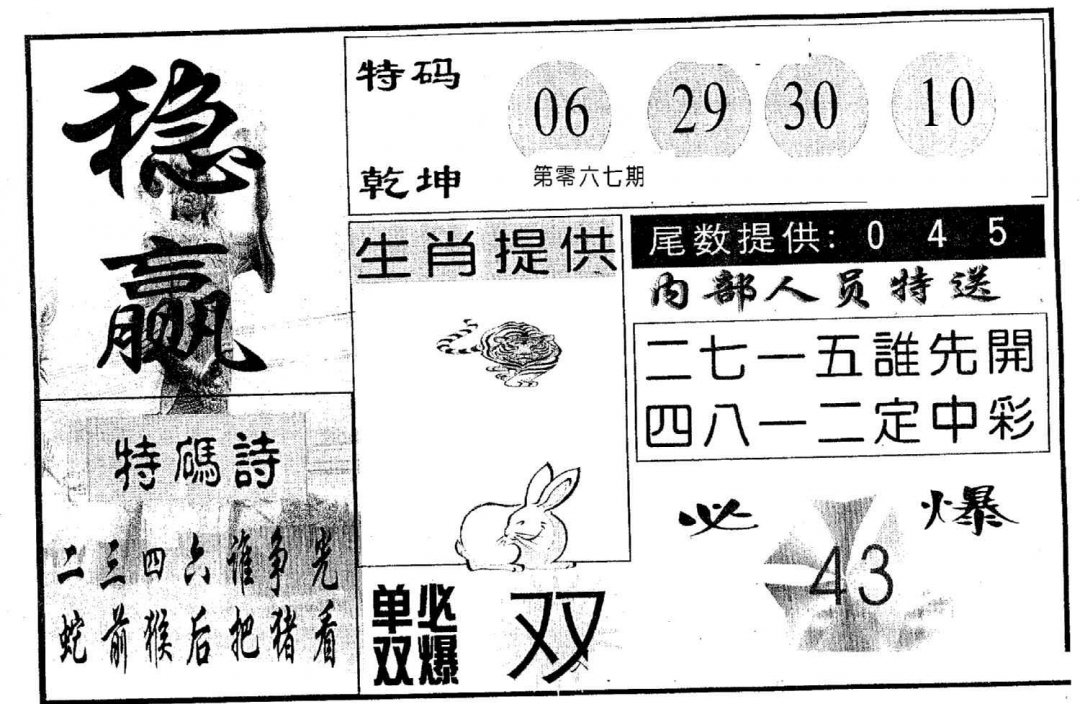 稳
赢
特码
乾坤
06 29 30 10
第零六七期
生肖提供
尾数提供: 0 4 5
内部人员特送
二七一五誰先開
四八一二定中彩
特碼詩
二三四六谁争光
蛇前猴后把猪看
单双必爆
双
必爆
43